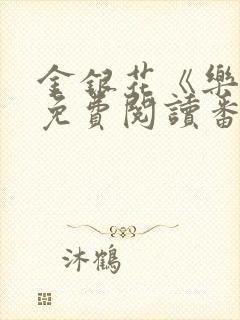 金銀花《樂
免費閱讀番
沐鶴